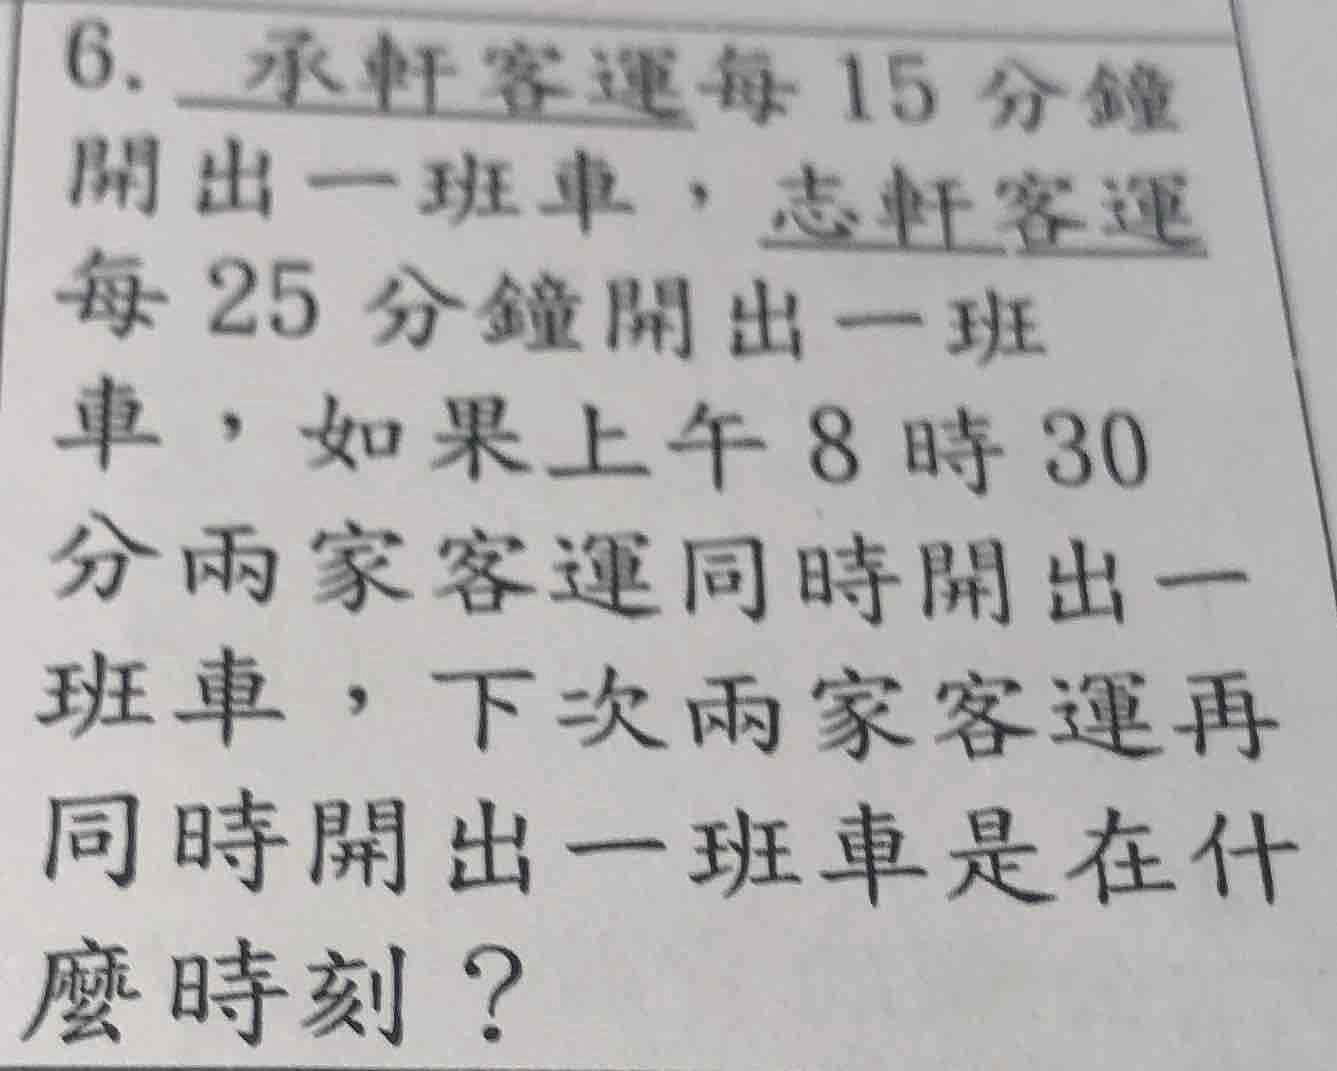 6. 承軒客運每 15 分鐘
開出一班車，志軒客運
每 25 分鐘開出一班
車，如果上午 8 時 30
分兩家客運同時開出一
班車，下次兩家客運再
同時開出一班車是在什
麼時刻？